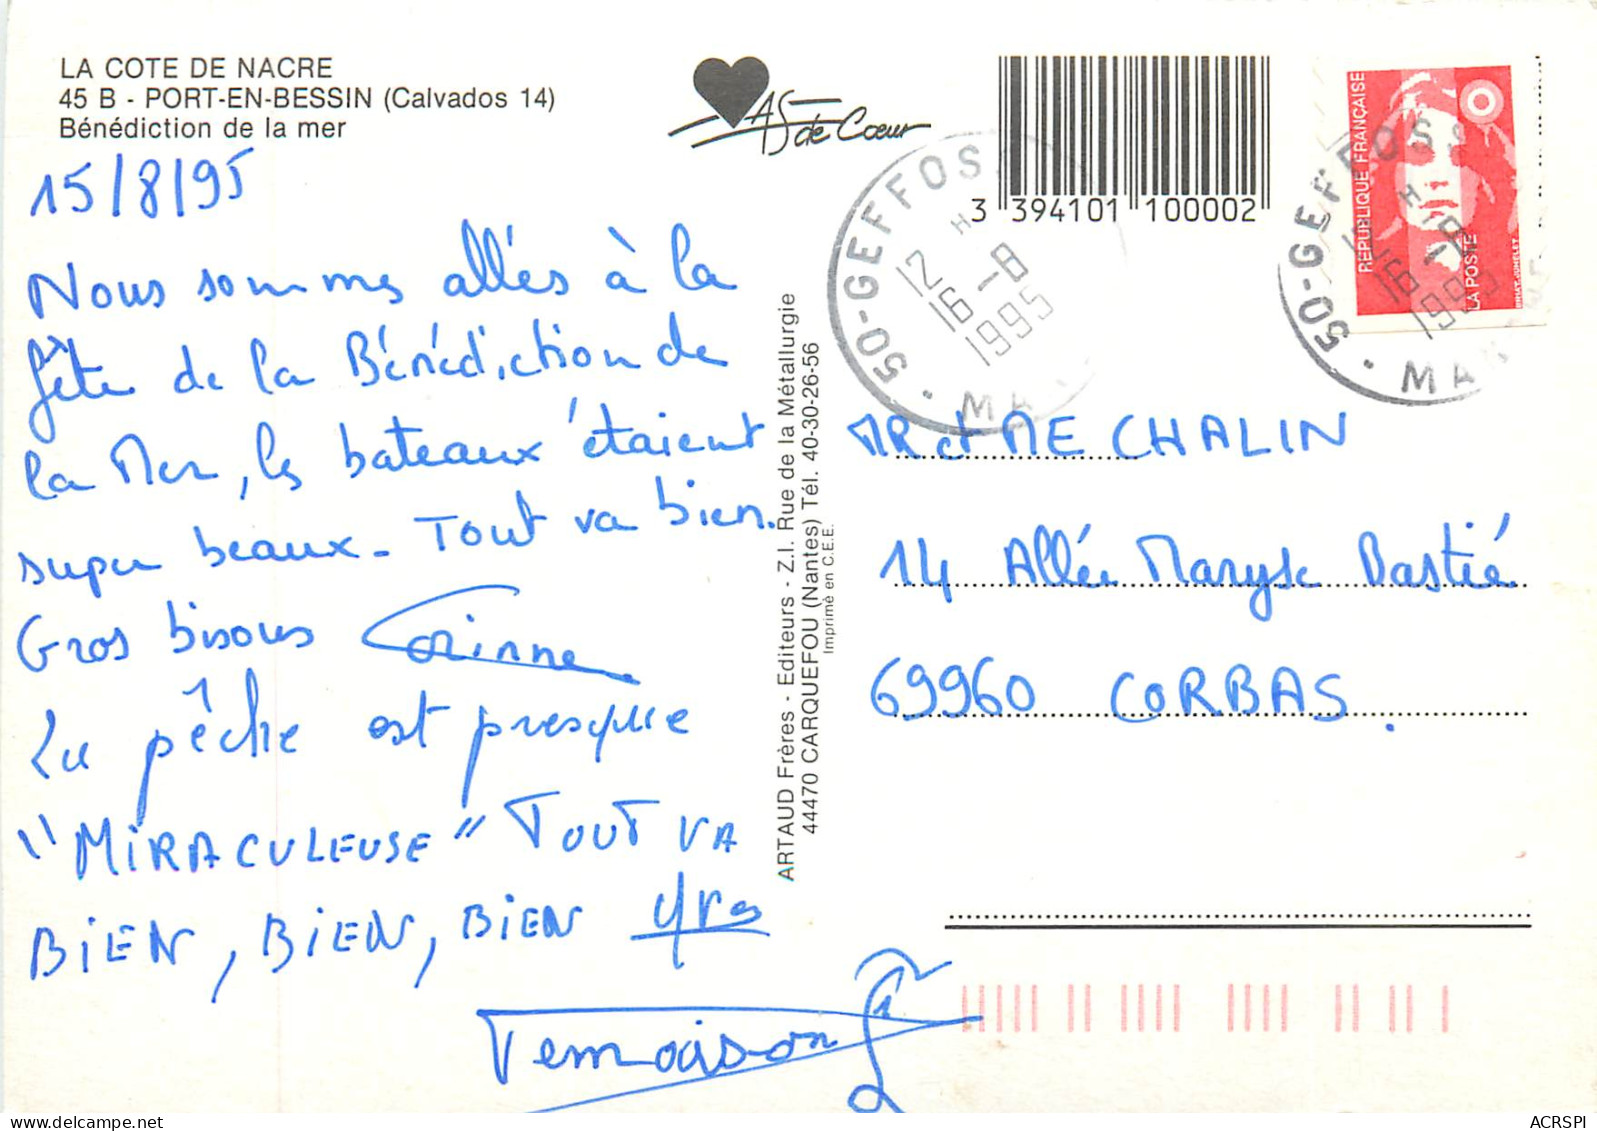 LA COTE DE NACRE
45 B - PORT-EN-BESSIN (Calvados 14)
Bénédiction de la mer
AS de Cœur
3 394101 100002
15/8/95
Nous sommes allés à la
fête de la Bénédiction de
la Mer, les bateaux étaient
super beaux - Tout va bien.
Gros bisous Corinne
La pêche est presque
"MIRACULEUSE" TOUT VA
BIEN, BIEN, BIEN Yves
ARTAUD Frères - Editeurs - Z.I. Rue de la Métallurgie
44470 CARQUEFOU (Nantes) Tél. 40-30-26-56
Imprimé en C.E.E.
50-GEFFOS
12 H
16-8
1995
MA
REPUBLIQUE FRANÇAISE
LA POSTE
BRIAT-JUMELET
50-GEFFOS
12 H
16-8
1995
MA
MR et ME CHALIN
14 Allée Maryse Bastié
69960 CORBAS.
ACRSPI